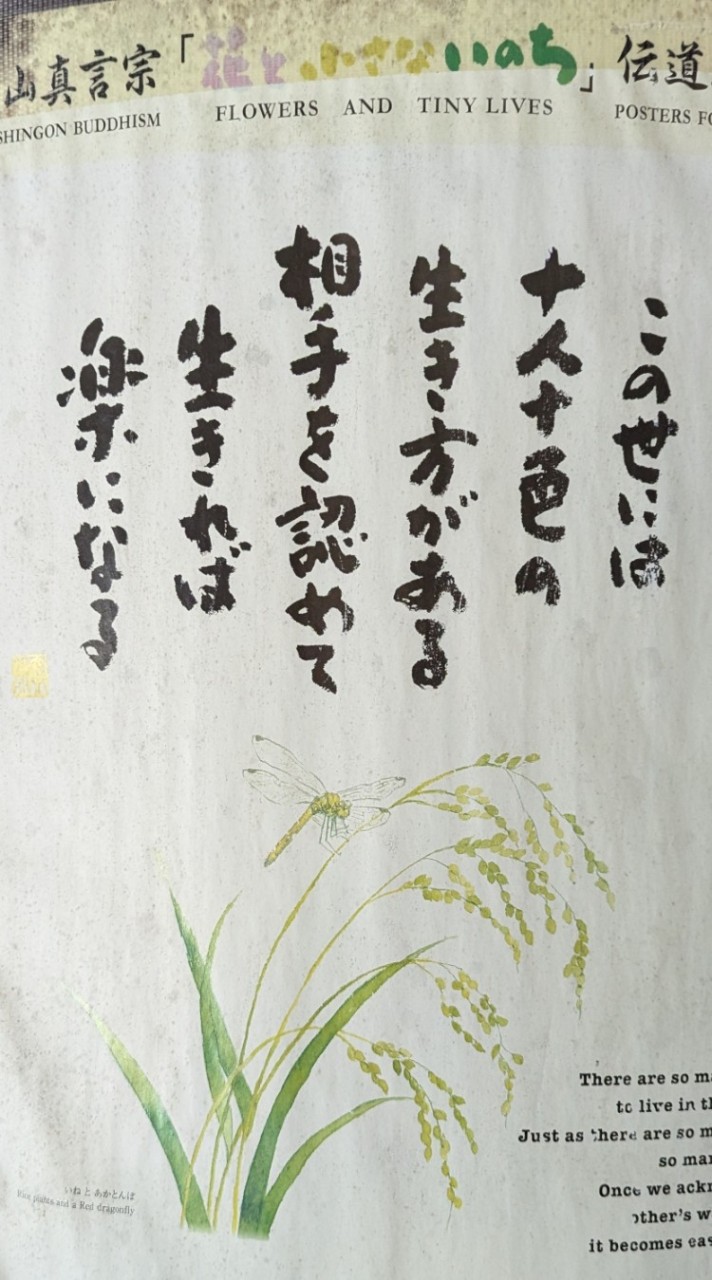 山真言宗「花と小さないのち」伝道
SHINGON BUDDHISM FLOWERS AND TINY LIVES POSTERS FO
この世には
十人十色の
生き方がある
相手を認めて
生きれば
楽になる
There are so ma
to live in th
Just as there are so m
so man
Once we ackn
other's w
it becomes eas
いねとあかとんぼ
Rice plants and a Red dragonfly